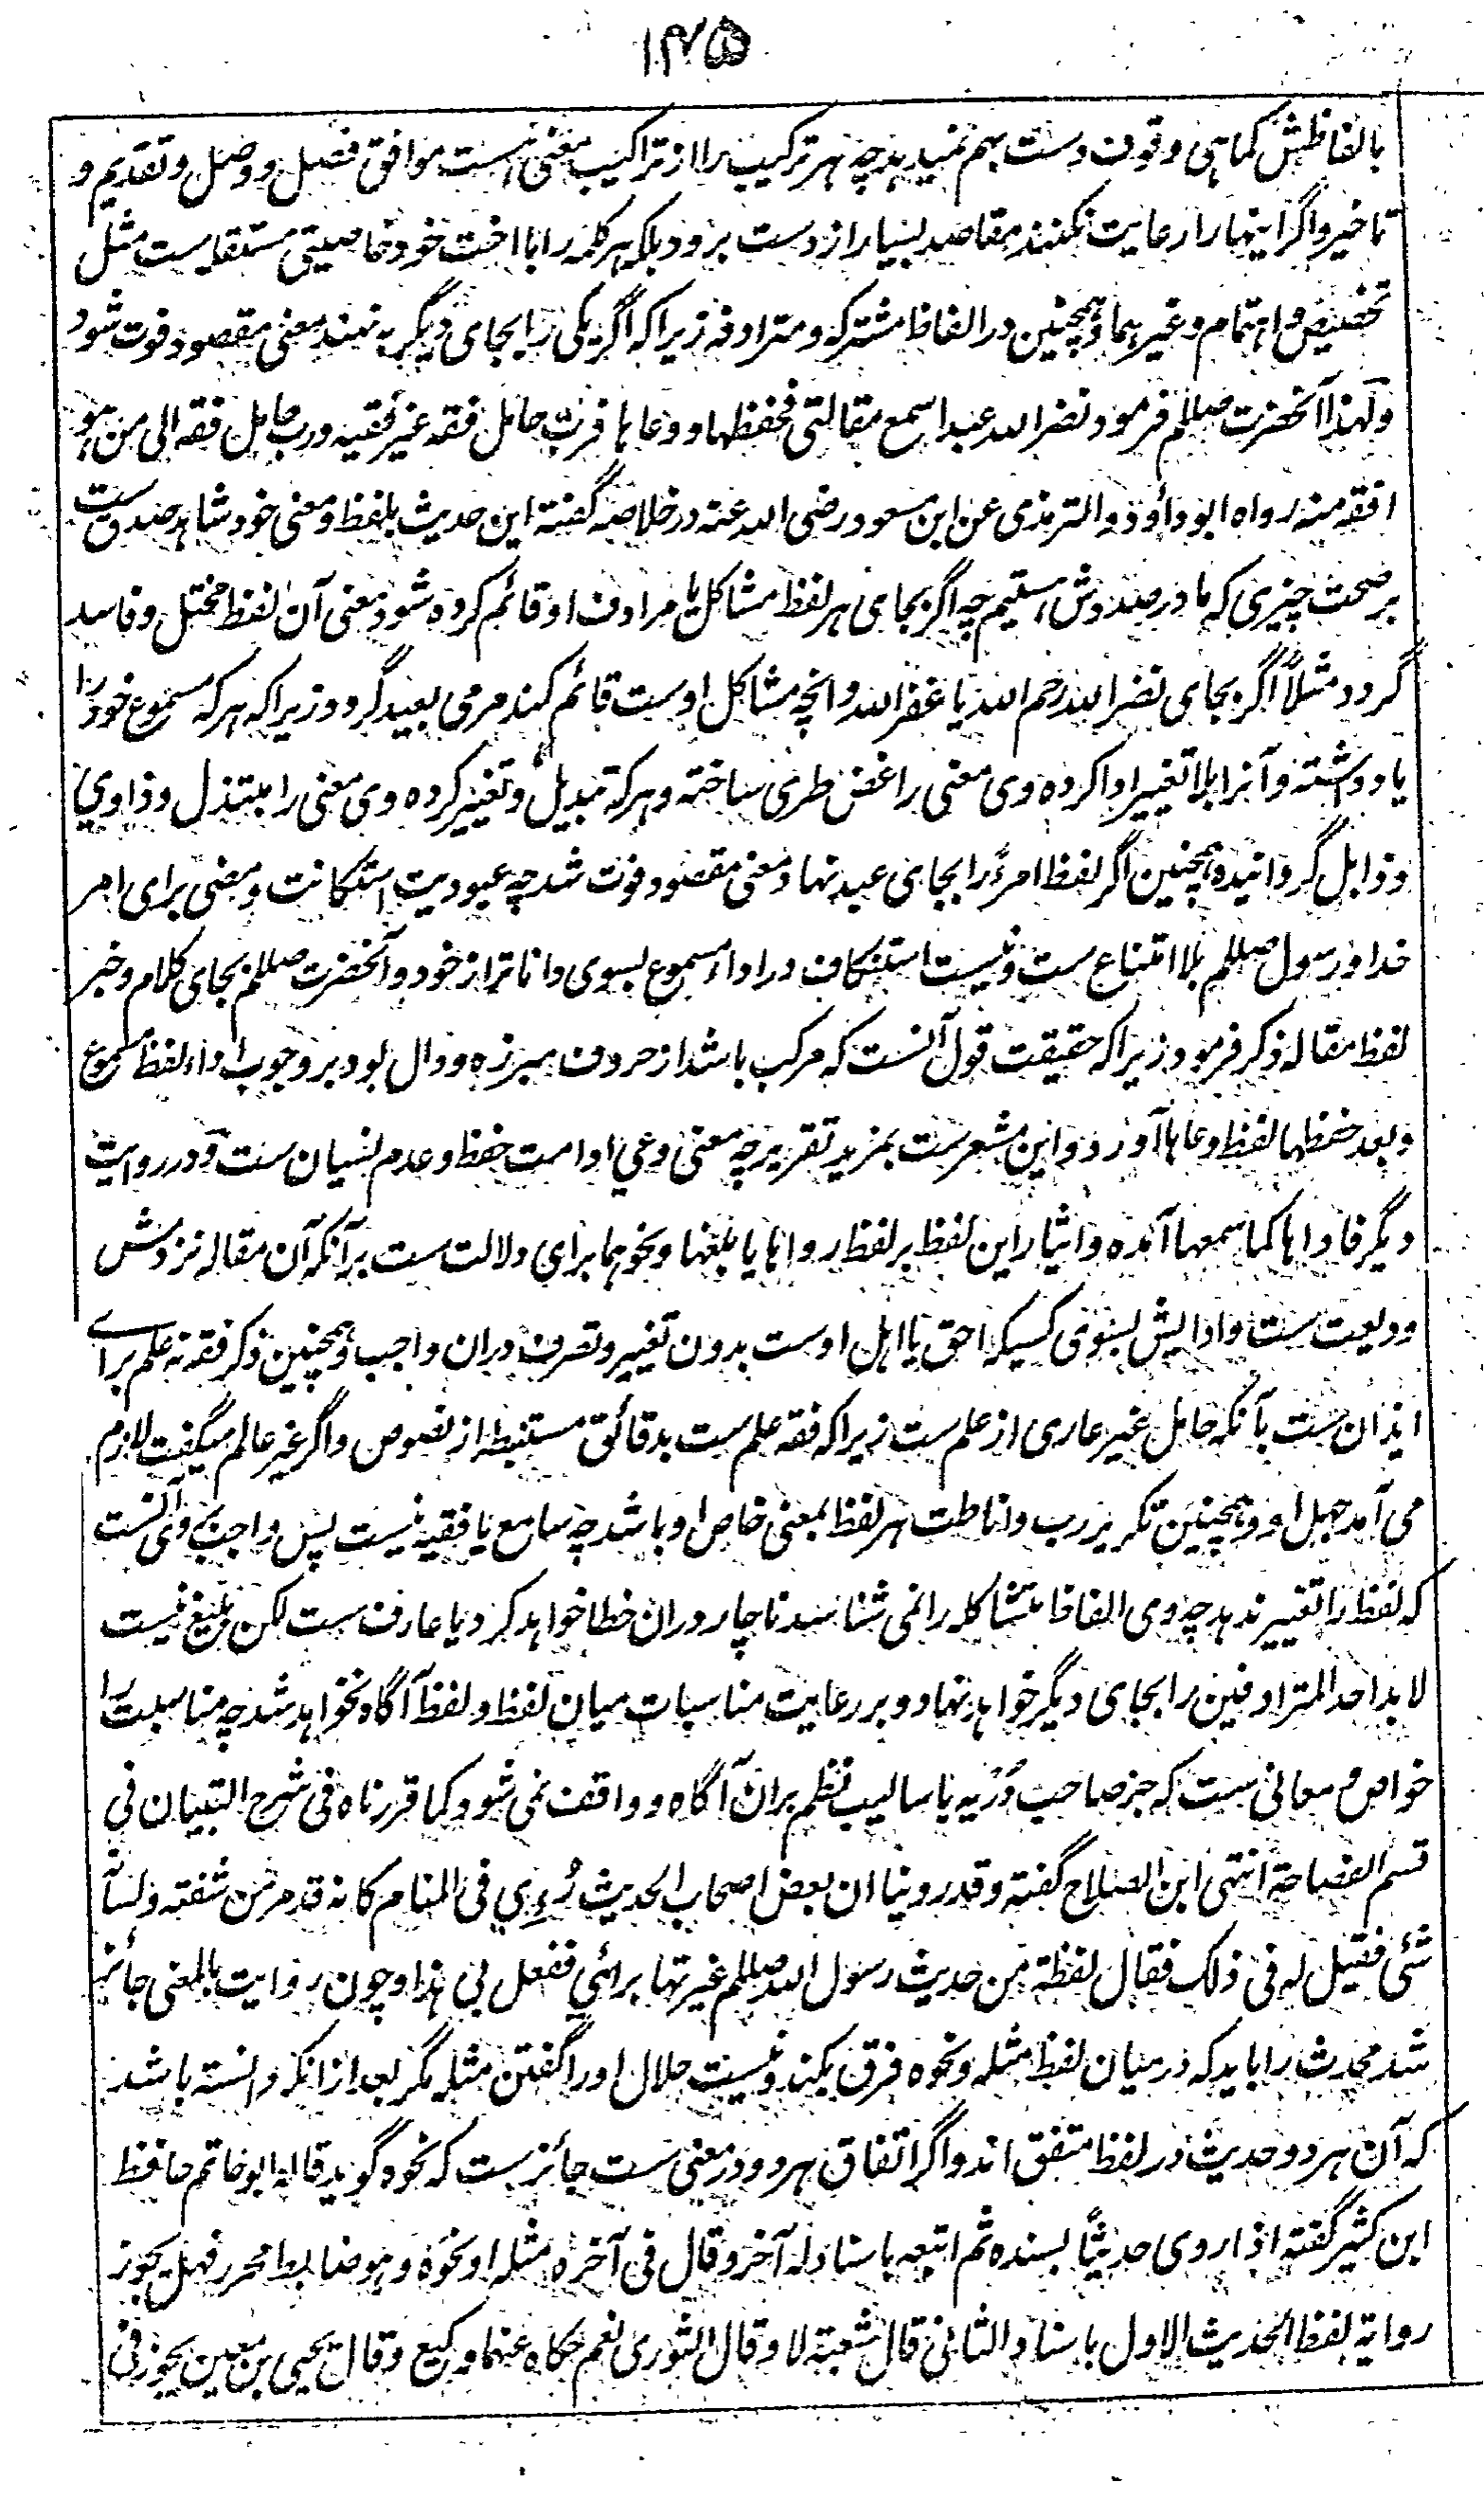 ۱۴۷۵
بالفاظش کماہی وقوف دست بہم نمیدہد چہ ہر ترکیب را از تراکیب معنی است موافق فصل و وصل و تقدیم و
تاخیر و اگر اینہا را رعایت نکنند مقاصد بسیار از دست برود بلکہ ہر کلمہ را با اخت خود خاصیتی مستقلہ است مثل
تخصیص و اہتمام و غیرہما و ہمچنین در الفاظ مشترکہ و مترادفہ زیرا کہ اگر یکی را بجای دیگر بہ نہند معنی مقصود فوت شود
ولہذا آنحضرت صللم فرمود نضر اللہ عبدا سمع مقالتی فحفظہا و وعاہا فرب حامل فقہ غیر فقیہ و رب حامل فقہ الی من ہو
افقہ منہ رواہ ابو داؤد و الترمذی عن ابن مسعود رضی اللہ عنہ در خلاصہ گفتہ این حدیث بلفظ و معنی خود شاہد صدق ست
بر صحت چیزی کہ ما در صددش استیم چہ اگر بجای ہر لفظ مشاکل یا مرادف او قائم کردہ شود معنی آن لفظ مختل و فاسد
گردد مثلاً اگر بجای نضر اللہ رحم اللہ یا غفر اللہ و انچہ مشاکل اوست قائم کند مرمی بعید گردد زیرا کہ ہر کہ مسموع خود را
یاد داشتہ و آنرا بلا تغییر ادا کردہ وی معنی را غض طری ساختہ و ہر کہ تبدیل و تغییر کردہ وی معنی را مبتذل و ذاوی
و ذابل گردانیدہ ہمچنین اگر لفظ امرءً را بجای عبد نہاد معنی مقصود فوت شد چہ عبودیت استکانت و مضی برای امر
خدا و رسول صللم بلا امتناع ست و نیست استنکاف در اداء مسموع بسوی داناتر از خود و آنحضرت صللم بجای کلام و خبر
لفظ مقالہ ذکر فرمود زیرا کہ حقیقت قول آنست کہ مرکب باشد از حروف مبرزہ و دال بود بر وجوب اداء لفظ مسموع
و بعد حفظہا لفظ وعاہا آورد و این مشعر ست بمزید تقریر چہ معنی وعی ادامت حفظ و عدم نسیان ست و در روایت
دیگر فاداہا کما سمعہا آمدہ و ایثار این لفظ بر لفظ رواہا یا بلغہا و نحوہما برای دلالت ست بر آنکہ آن مقالہ نزدش
ودیعت ست و ادایش بسوی کسیکہ احق یا اہل اوست بدون تغییر و تصرف دران واجب و ہمچنین ذکر فقہ نہ علم برای
ایذان ست بآنکہ حامل غیر عاری از علم ست زیرا کہ فقہ علم ست بدقائق مستنبطہ از نصوص و اگر غیر عالم میگفت لازم
می آمد جہل او و ہمچنین تکریر رب و اناطت ہر لفظ بمعنی خاص او باشد چہ سامع یا فقیہ نیست پس واجب بروی آنست
کہ لفظ را تغییر ندہد چہ وی الفاظ متشاکلہ را نمی شناسد ناچار دران خطا خواہد کرد یا عارف ست لکن بلیغ نیست
لابد احد المترادفین را بجای دیگر خواہد نہاد و بر رعایت مناسبات میان لفظ و لفظ آگاہ نخواہد شد چہ مناسبت را
خواص و معانی ست کہ جز صاحب دُربہ باسالیب نظم بران آگاہ و واقف نمی شود کما قررناہ فی شرح التبیان فی
قسم الفصاحۃ انتہی ابن الصلاح گفتہ و قد روینا ان بعض اصحاب الحدیث رُءِیَ فی المنام کانہ قد مر من شفتہ و لسانہ
شئی فقیل لہ فی ذلک فقال لفظۃ من حدیث رسول اللہ صللم غیرتہا برائی ففعل بی ہذا و چون روایت بالمعنی جائز
شد محدث را باید کہ درمیان لفظ مثلہ و نحوہ فرق بکند و نیست حلال او را گفتن مثلہ مگر بعد از انکہ دانستہ باشد
کہ آن ہر دو حدیث در لفظ متفق اند و اگر اتفاق ہر دو در معنی ست جائز ست کہ نحوہ گوید قالہ ابو حاتم حافظ
ابن کثیر گفتہ اذا روی حدیثًا بسندہ ثم اتبعہ باسناد لہ آخر و قال فی آخرہ مثلہ او نحوہ و ہو ضابط محرر فہل یجوز
روایۃ لفظ الحدیث الاول باسناد الثانی قال شعبۃ لا و قال الثوری نعم حکاہ عنہما وکیع و قال یحیی بن معین یجوز فی